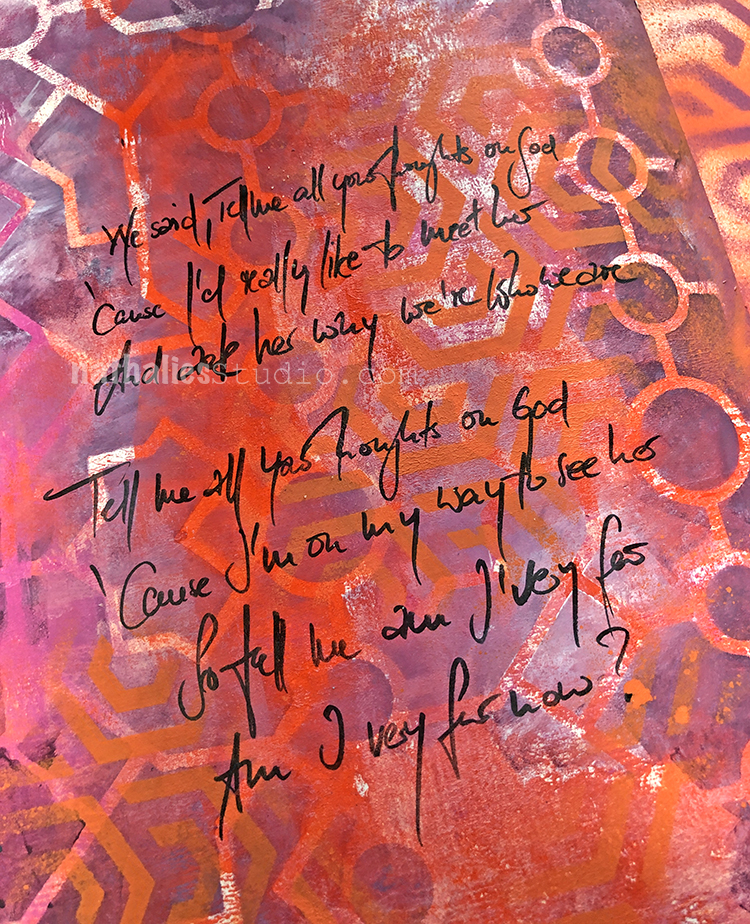 We said, Tell me all your thoughts on God
'Cause I'd really like to meet her
And ask her why we're who we are
nathaliesstudio.com
Tell me all your thoughts on God
'Cause I'm on my way to see her
So tell me am I very far
Am I very far now?